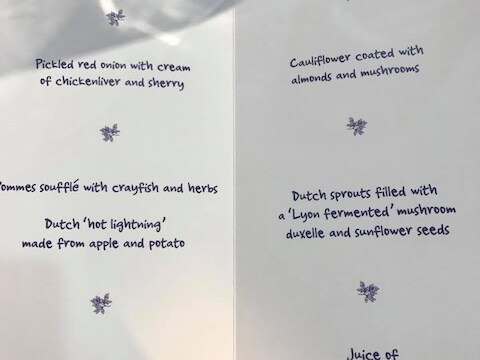 Pickled red onion with cream
of chickenliver and sherry
ommes soufflé with crayfish and herbs
Dutch 'hot lightning'
made from apple and potato
Cauliflower coated with
almonds and mushrooms
Dutch sprouts filled with
a 'Lyon fermented' mushroom
duxelle and sunflower seeds
Juice of